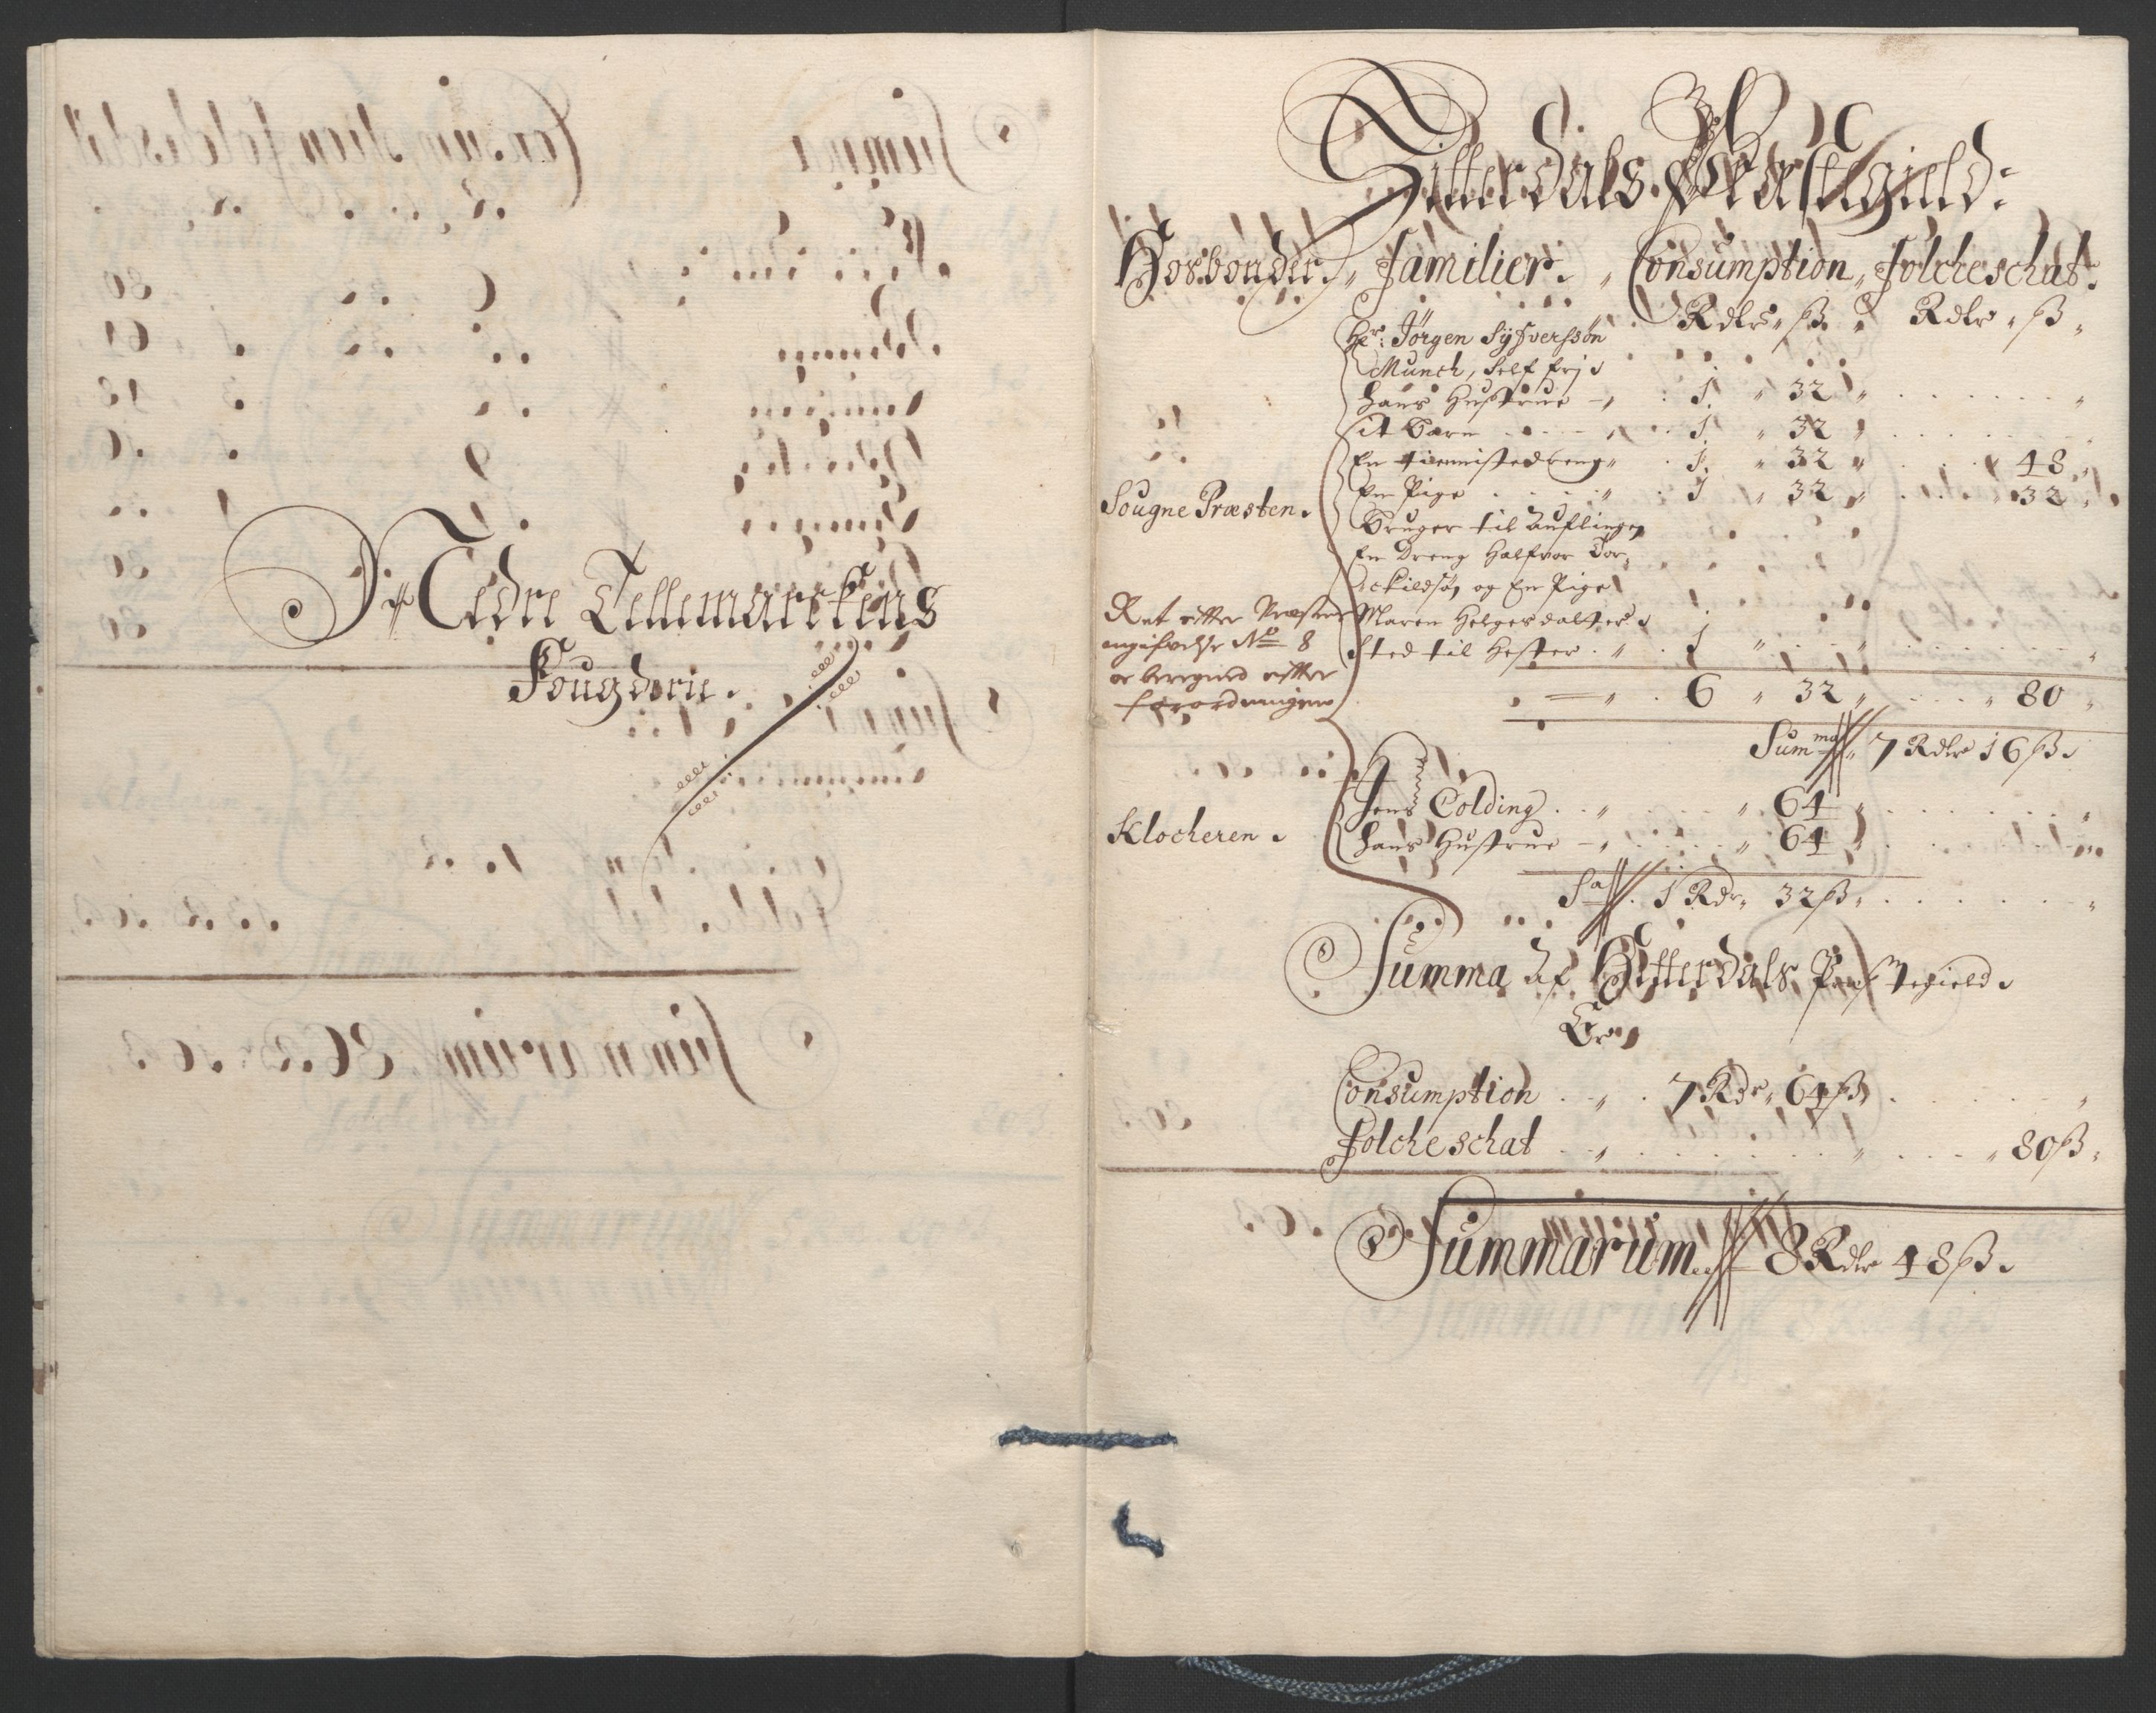 Nedre Tellemarckens
Fougderie.
Hitterdals Præstegield:
Hosbonder. Familier. Consumption Folcheschat.
Rdlr ß Rdlr ß
Hr: Jørgen Syfversøn
Munch, Self frj
Hans Hustrue 1 32
it Barn 1 32
En tiennistedreng 1 32 48
En Pige 1 32 32
Sougne Præsten.
Bruger til Auflingen
En Dreng Halfvor Tor-
ckildsøn og En Pige
Maren Helgesdatter
Sted til Hester 1
Ret efter Præstens
angifvelse No 8
er beregned efter
forordningen
6 32 80
Summa 7 Rdlr 16 ß
Jens Colding 64
Klocheren.
Hans Hustrue 64
Sa 1 Rdr 32 ß
Summa Af Hitterdals Præstegield
Er
Consumption 7 Rdr 64 ß
Folcheschat 80 ß
Summarum 8 Rdlr 48 ß